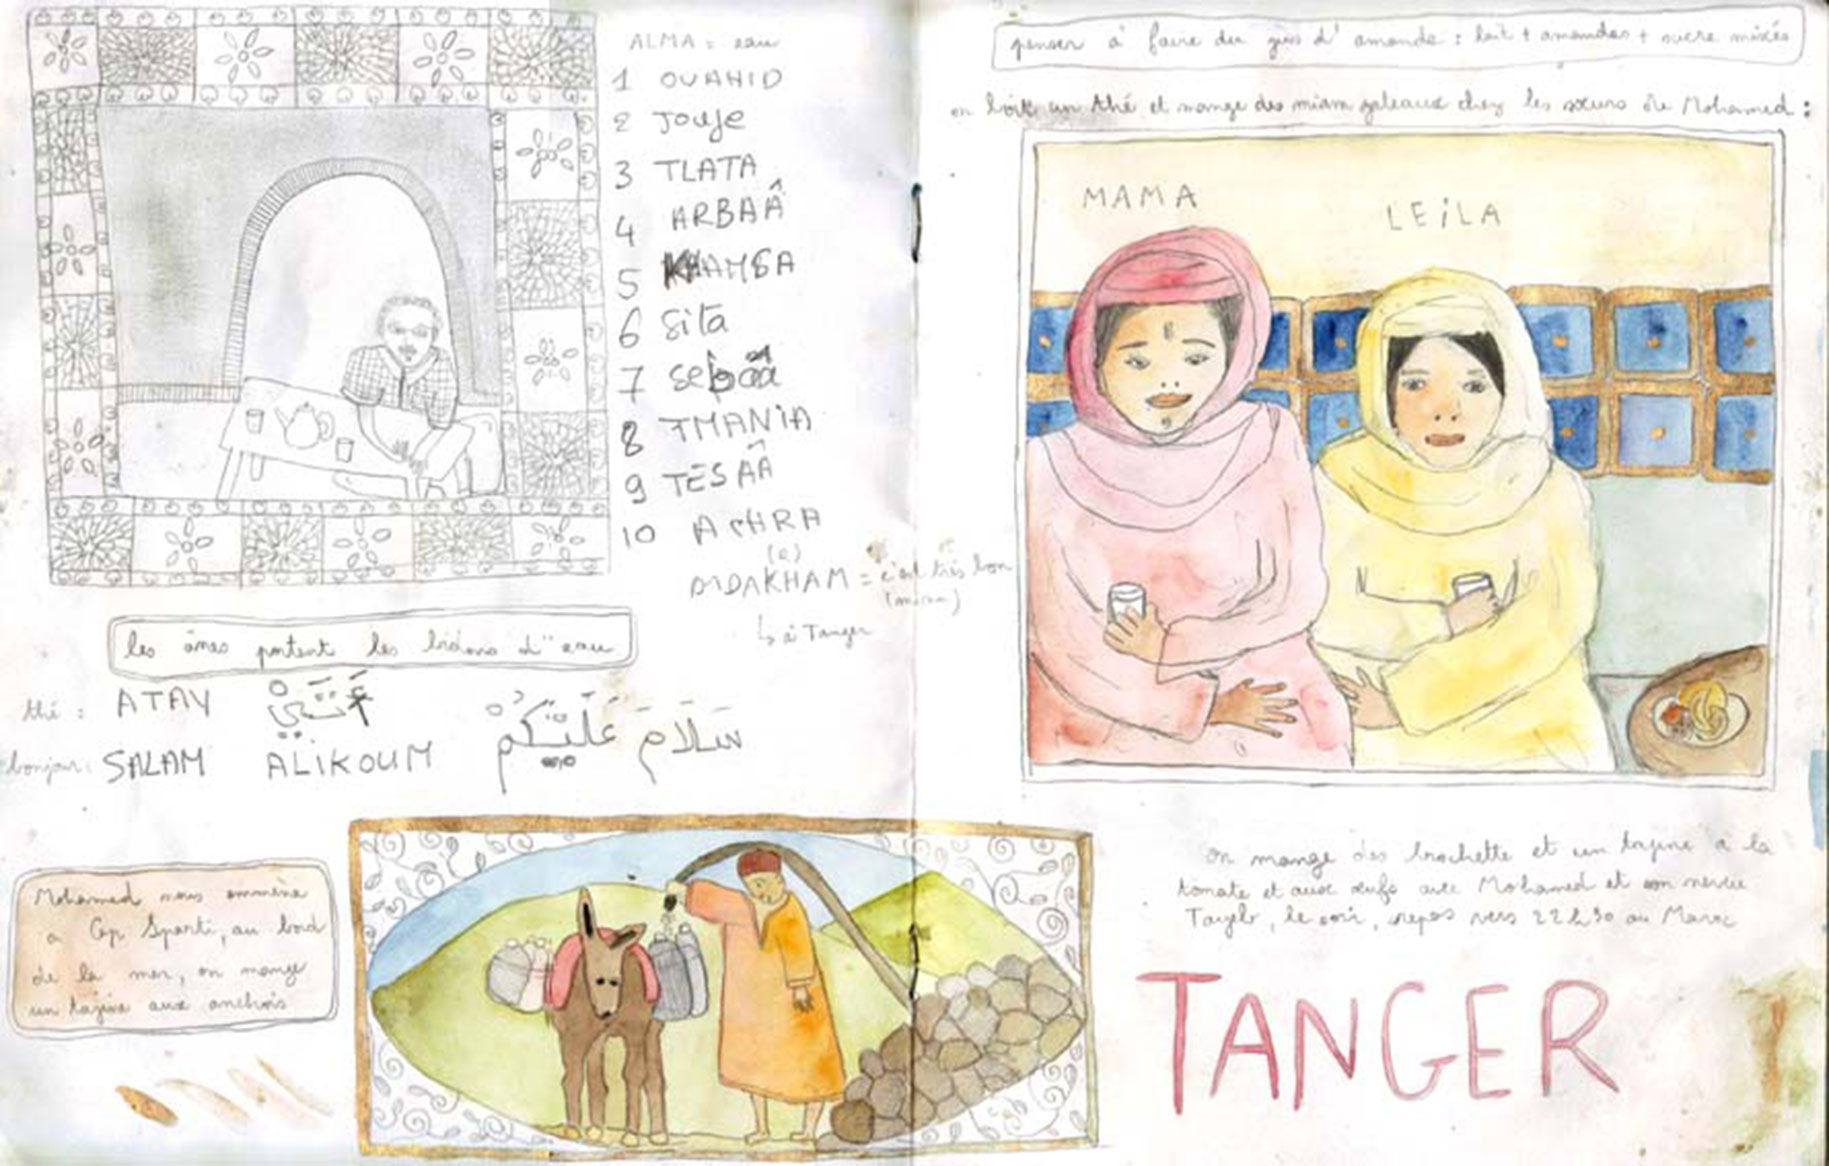 ALMA = eau
1 OUAHID
2 Jouje
3 TLATA
4 ARBAÂ
5 KHAMSA
6 Sita
7 Sebââ
8 TMANIA
9 TESAÂ
10 ACHRA
(e)
DIDAKHAM = c'est très bon
(miam)
↳ à Tanger
les ânes portent les bidons d'eau
thé : ATAY
bonjour : SALAM ALIKOUM سَلَامَ عَلَيْكُمْ
Mohamed nous emmène
a Cap Sparti, au bord
de la mer, on mange
un tajine aux anchois
penser à faire du jus d'amande : lait + amandes + sucre mixés
on boit un thé et mange des miam gateaux chez les sœurs de Mohamed :
MAMA
LEiLA
on mange des brochette et un tajine a la
tomate et aux œufs avec Mohamed et son neveu
Tayeb, le soir, repas vers 22h30 au Maroc
TANGER